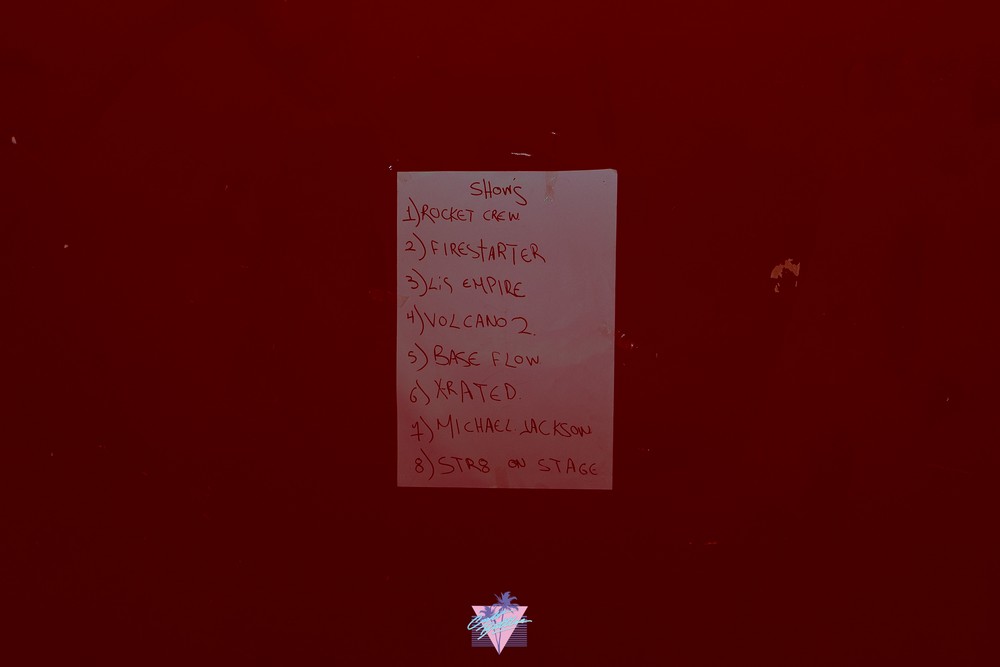 SHOW'S
1) ROCKET CREW.
2) FIRESTARTER
3) LiS EMPIRE
4) VOLCANO 2.
5) BASE FLOW.
6) X-RATED.
7) MICHAEL JACKSON
8) STR8 ON STAGE